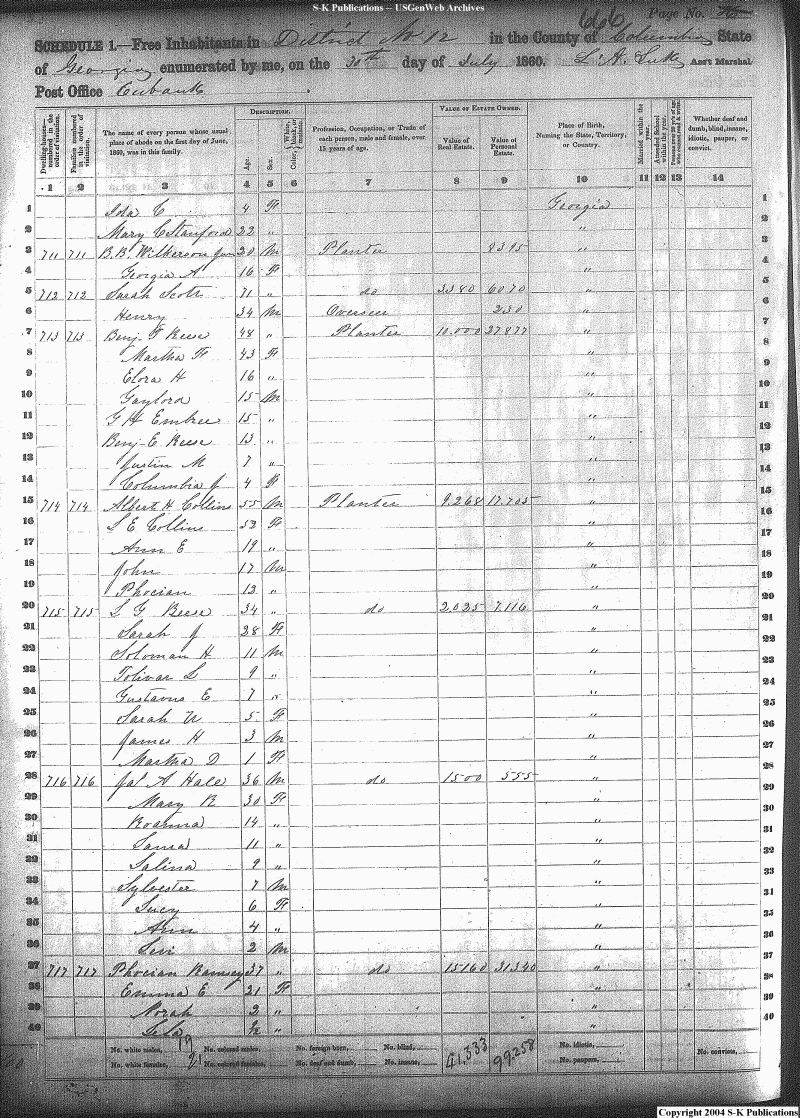 S-K Publications – USGenWeb Archives
666 Page No. 76
SCHEDULE 1.—Free Inhabitants in District No 12 in the County of Columbia State
of Georgia enumerated by me, on the 30th day of July 1860. L. A. Luke Ass't Marshal
Post Office Eubank
Dwelling-houses numbered in the order of visitation. Families numbered in the order of visitation. The name of every person whose usual place of abode on the first day of June, 1860, was in this family. DESCRIPTION. Age. Sex. Color, White, black, or mulatto. Profession, Occupation, or Trade of each person, male and female, over 15 years of age. VALUE OF ESTATE OWNED. Value of Real Estate. Value of Personal Estate. Place of Birth, Naming the State, Territory, or Country. Married within the year. Attended School within the year. Whether deaf and dumb, blind, insane, idiotic, pauper, or convict.
1 2 3 4 5 6 7 8 9 10 11 12 13 14
1 Ida C 4 F Georgia 1
2 Mary C Stanford 22 " " 2
3 711 711 B. B. Wilkerson Jun 20 M Planter 8395 " 3
4 Georgia A 16 F " 4
5 712 712 Sarah Scott 71 " do 3380 6070 " 5
6 Henry 34 M Overseer 230 " 6
7 713 713 Benj F Reese 48 " Planter 10.000 27877 " 7
8 Martha F 43 F " 8
9 Elora H 16 " " 9
10 Gaylord 15 M " 10
11 G H Embree 15 " " 11
12 Benj E Reese 13 " " 12
13 Justin M 7 " " 13
14 Columbia J 4 F " 14
15 714 714 Albert H Collins 55 M Planter 9.268 17.705 " 15
16 S E Collins 53 F " 16
17 Ann E 19 " " 17
18 John 17 M " 18
19 Phocian 12 " " 19
20 715 715 L G Reese 34 " do 2.025 7.116 " 20
21 Sarah J 28 F " 21
22 Soloman H 11 M " 22
23 Tolivar L 9 " " 23
24 Gustavus E 7 " " 24
25 Sarah U 5 F " 25
26 James H 3 M " 26
27 Martha D 1 F " 27
28 716 716 Jas A Hale 36 M do 1500 555 " 28
29 Mary R 30 F " 29
30 Roanna 14 " " 30
31 11 " " 31
32 Salina 9 " " 32
33 Sylvester 7 M " 33
34 Lucy 6 F " 34
35 Ann 4 " " 35
36 Levi 2 M " 36
37 717 717 Phocian Ramsey 37 " do 15160 31340 " 37
38 Emma E 21 F " 38
39 Norah 2 " " 39
40 Lela " " 40
No. white males, 19 No. colored males, No. foreign born, No. blind, 41,333 99,258 No. idiotic, No. convicts,
No. white females, 21 No. colored females, No. deaf and dumb, No. insane, No. paupers,
Copyright 2004 S-K Publications